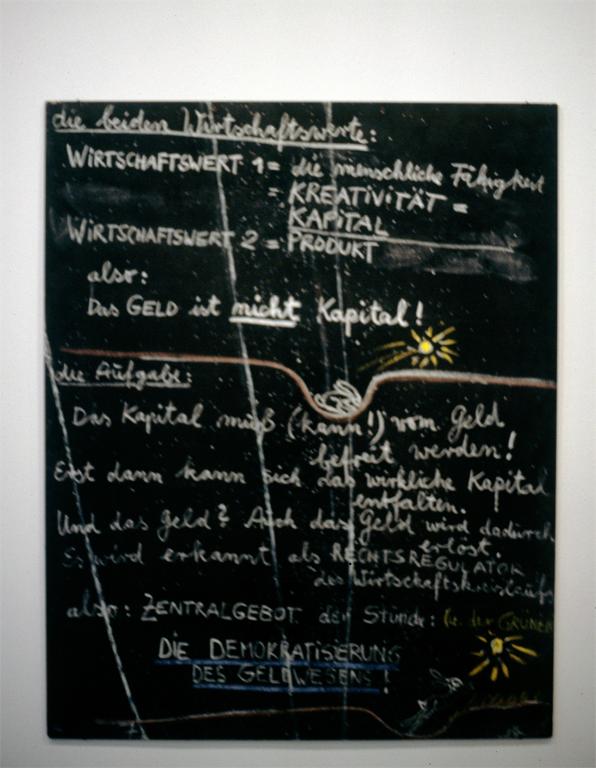 die beiden Wirtschaftswerte:
WIRTSCHAFTSWERT 1 = die menschliche Fähigkeit
= KREATIVITÄT =
KAPITAL
WIRTSCHAFTSWERT 2 = PRODUKT
also:
Das GELD ist nicht Kapital!
die Aufgabe:
Das Kapital muß (kann!) vom Geld
befreit werden!
Erst dann kann sich das wirkliche Kapital
entfalten.
Und das Geld? Auch das Geld wird dadurch
erlöst.
Es wird erkannt als RECHTSREGULATOR
des Wirtschaftskreislaufs
also: ZENTRALGEBOT der Stunde: der GRÜNEN
DIE DEMOKRATISIERUNG
DES GELDWESENS!